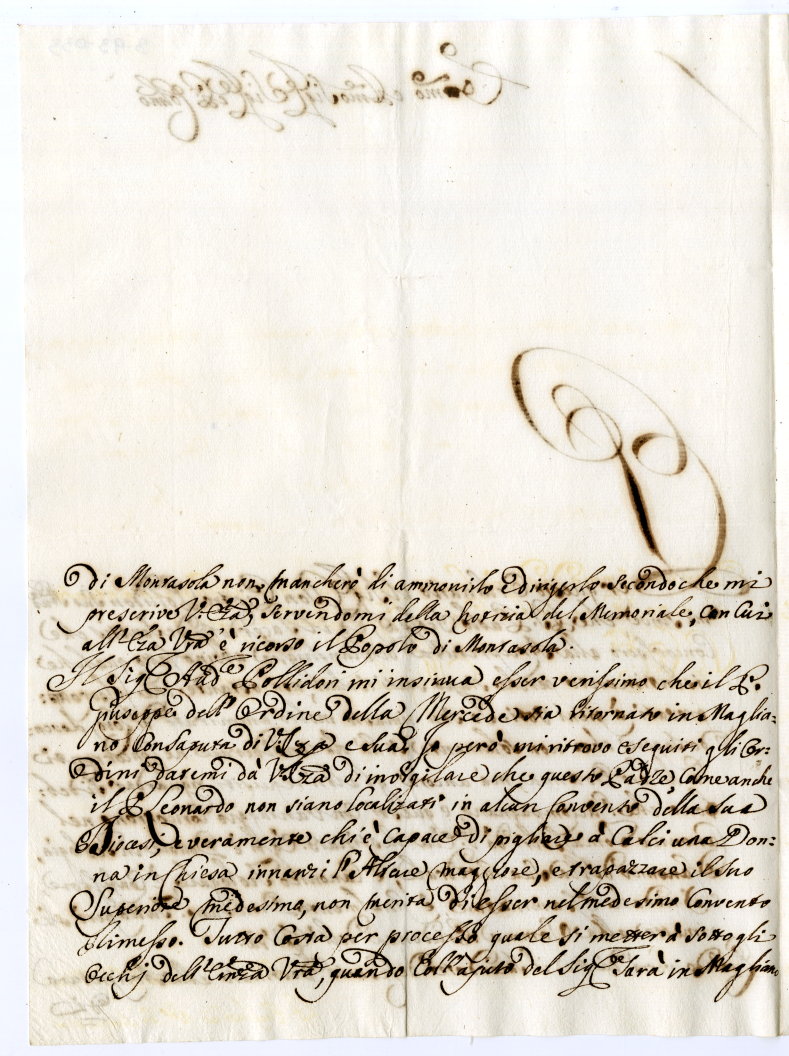 P
di Montasola non mancherò di ammonirlo e dirigerlo secondo che mi
prescrive V: Eza, servendomi della notizia del Memoriale, con cui
all'Eza Vra è ricorso il Popolo di Montasola.
Il Sigre Aude Pollidori mi insinua esser verissimo che il P.
Giuseppe dell'Ordine della Mercede sia ritornato in Maglia-
no consaputa di V: Eza e sua, Io però mi ritrovo eseguiti gli Or-
dini datemi dà V: Eza di invigilare che questo Padre, come anche
il P. Leonardo non siano localizati in alcun Convento della sua
Diocesi, e veramente chi è capace di pigliare à Calci una Don-
na in Chiesa innanzi l'Altare maggiore, e strapazzare il suo
Superiore medesimo, non merita di esser nel medesimo Convento
rimesso. Tutto costa per processo quale si metterà sotto gli
occhj dell'Emza Vra, quando coll'ajuto del Sigre sarà in Magliano